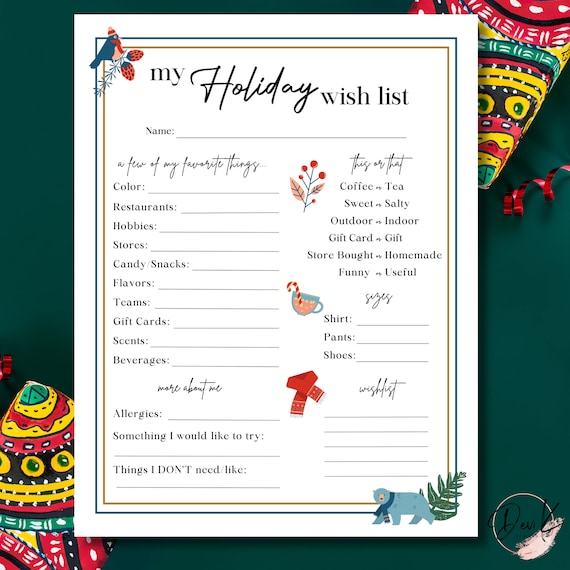 my Holiday wish list
Name:
a few of my favorite things...
Color:
Restaurants:
Hobbies:
Stores:
Candy/Snacks:
Flavors:
Teams:
Gift Cards:
Scents:
Beverages:
this or that
Coffee or Tea
Sweet or Salty
Outdoor or Indoor
Gift Card or Gift
Store Bought or Homemade
Funny or Useful
sizes
Shirt:
Pants:
Shoes:
more about me
Allergies:
Something I would like to try:
Things I DON'T need/like:
wishlist